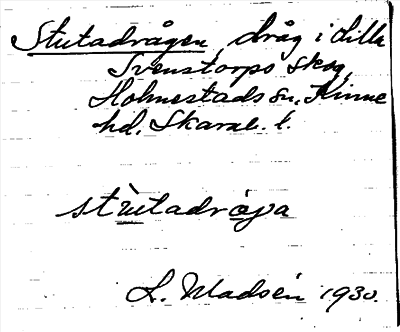 Stutadrågen, dråg i Lilla
Svenstorps skog,
Holmestads sn. Kinne
hd. Skarab. l.
stùtadrǫga
L. Madsén 1930.